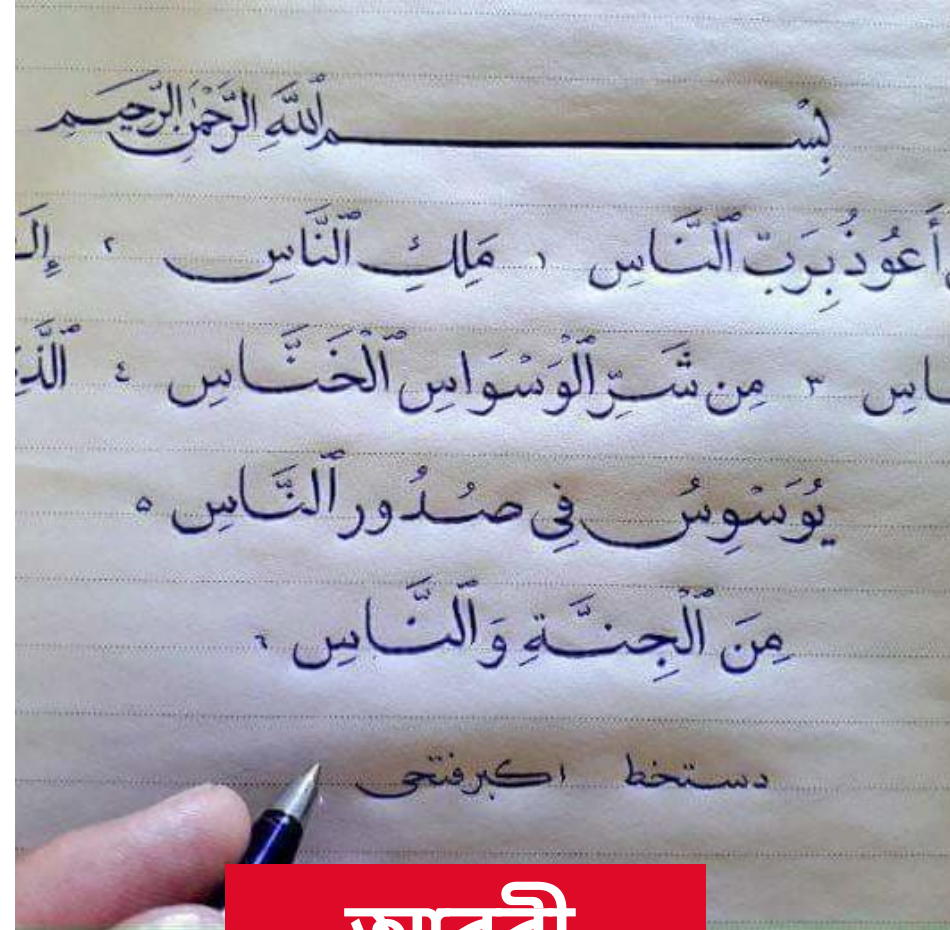 بِسْمِ ٱللَّهِ الرَّحْمَٰنِ الرَّحِيمِ
أَعُوذُ بِرَبِّ ٱلنَّاسِ ١ مَلِكِ ٱلنَّاسِ ٢
٣ مِن شَرِّ ٱلْوَسْوَاسِ ٱلْخَنَّاسِ ٤
يُوَسْوِسُ فِي صُدُورِ ٱلنَّاسِ ٥
مِنَ ٱلْجِنَّةِ وَٱلنَّاسِ ٦
دستخط اکبر فتحی
আরবী